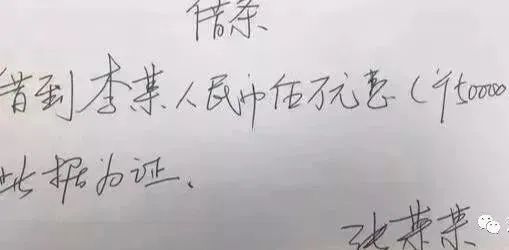 借条
借到李某人民币伍万元意(¥50000
此据为证、
张某某